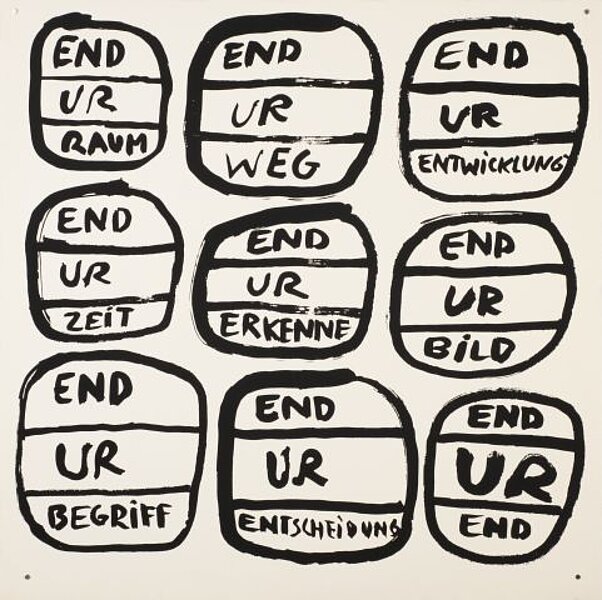 END
UR
RAUM
END
UR
WEG
END
UR
ENTWICKLUNG
END
UR
ZEiT
END
UR
ERKENNE
END
UR
BiLD
END
UR
BEGRiFF
END
UR
ENTSCHEiDUNG
END
UR
END